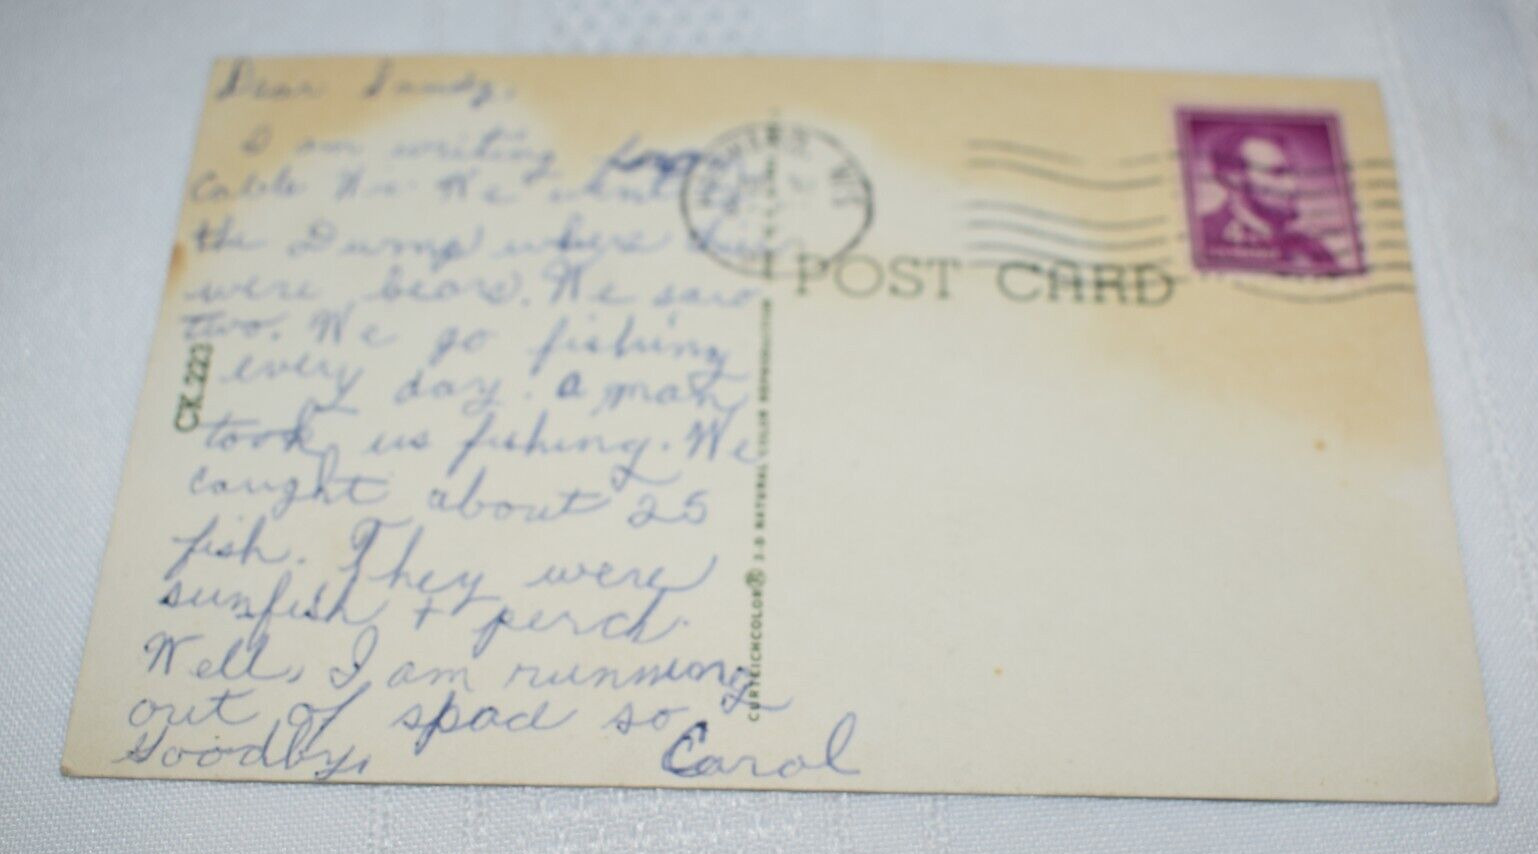 Dear Sandy,
I am writing from
Cable Wis. We went to
the Dump where their
were bears. We saw
two. We go fishing
every day. a man
took us fishing. We
caught about 25
fish. They were
sunfish + perch.
Well, I am running
out of spac so
Goodby,
Carol
CK.223
CURTEICHCOLOR® 3-D NATURAL COLOR REPRODUCTION
POST CARD
WIS
4¢